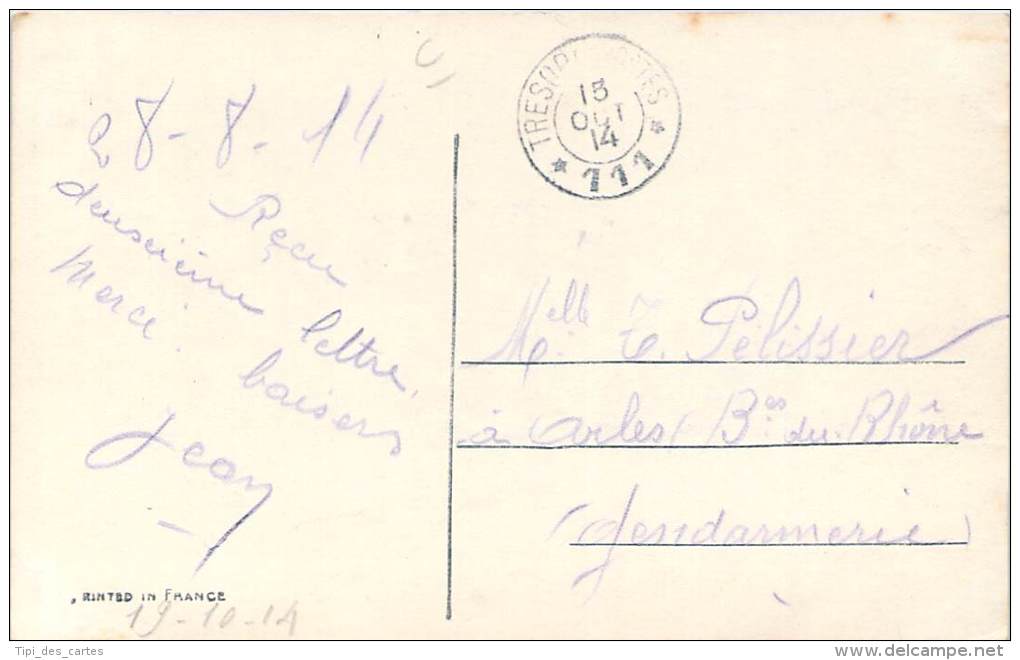 28-8-14
Reçu
deuxième lettre,
Merci. baisers
Jean
TRESOR POSTES
15
OCT
14
* 111 *
Melle T. Pélissier
à Arles Bes du Rhône
(Gendarmerie)
RINTED IN FRANCE
19-10-14
Tipi_des_cartes
www.delcampe.net